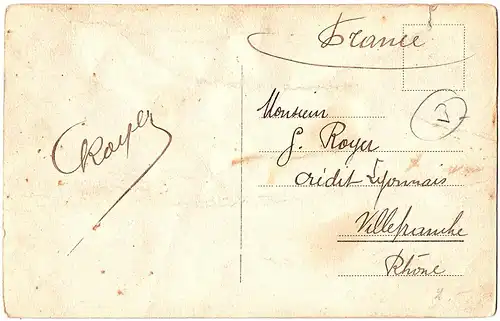 France
V
Monsieur
G. Royer
Crédit Lyonnais
Villefranche
Rhône
Royer